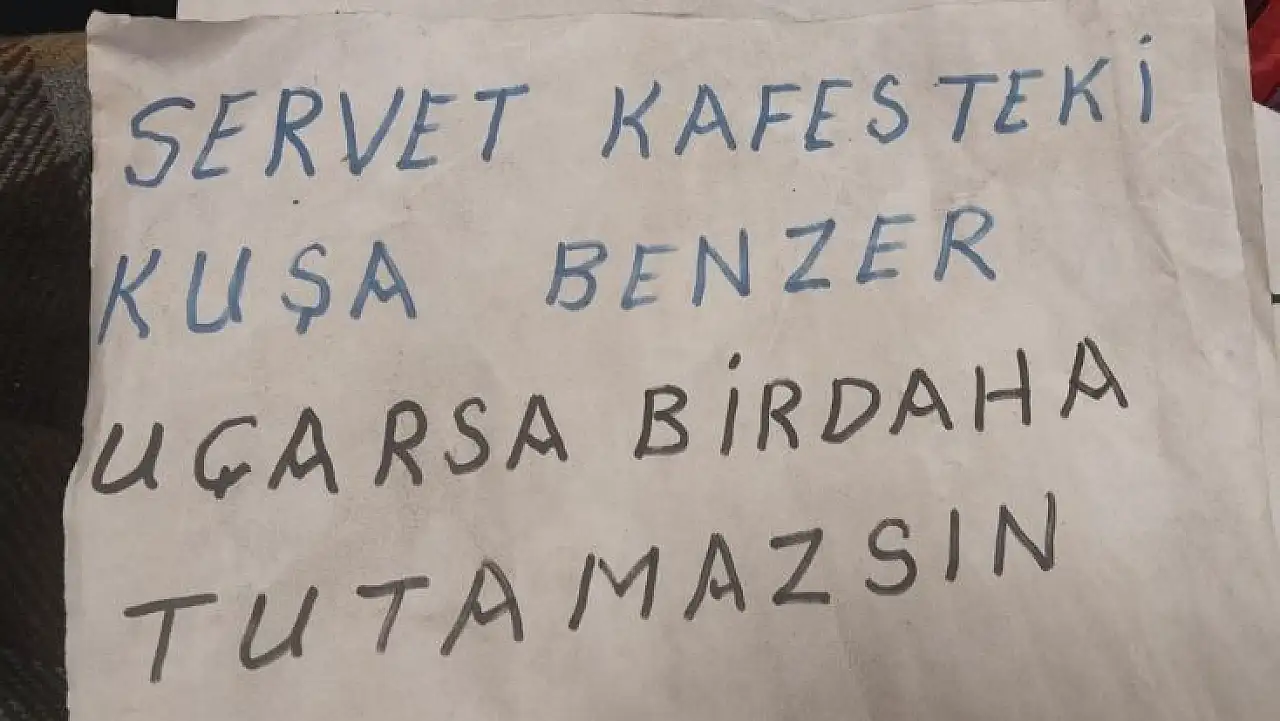 SERVET KAFESTEKİ
KUŞA BENZER
UÇARSA BİRDAHA
TUTAMAZSIN